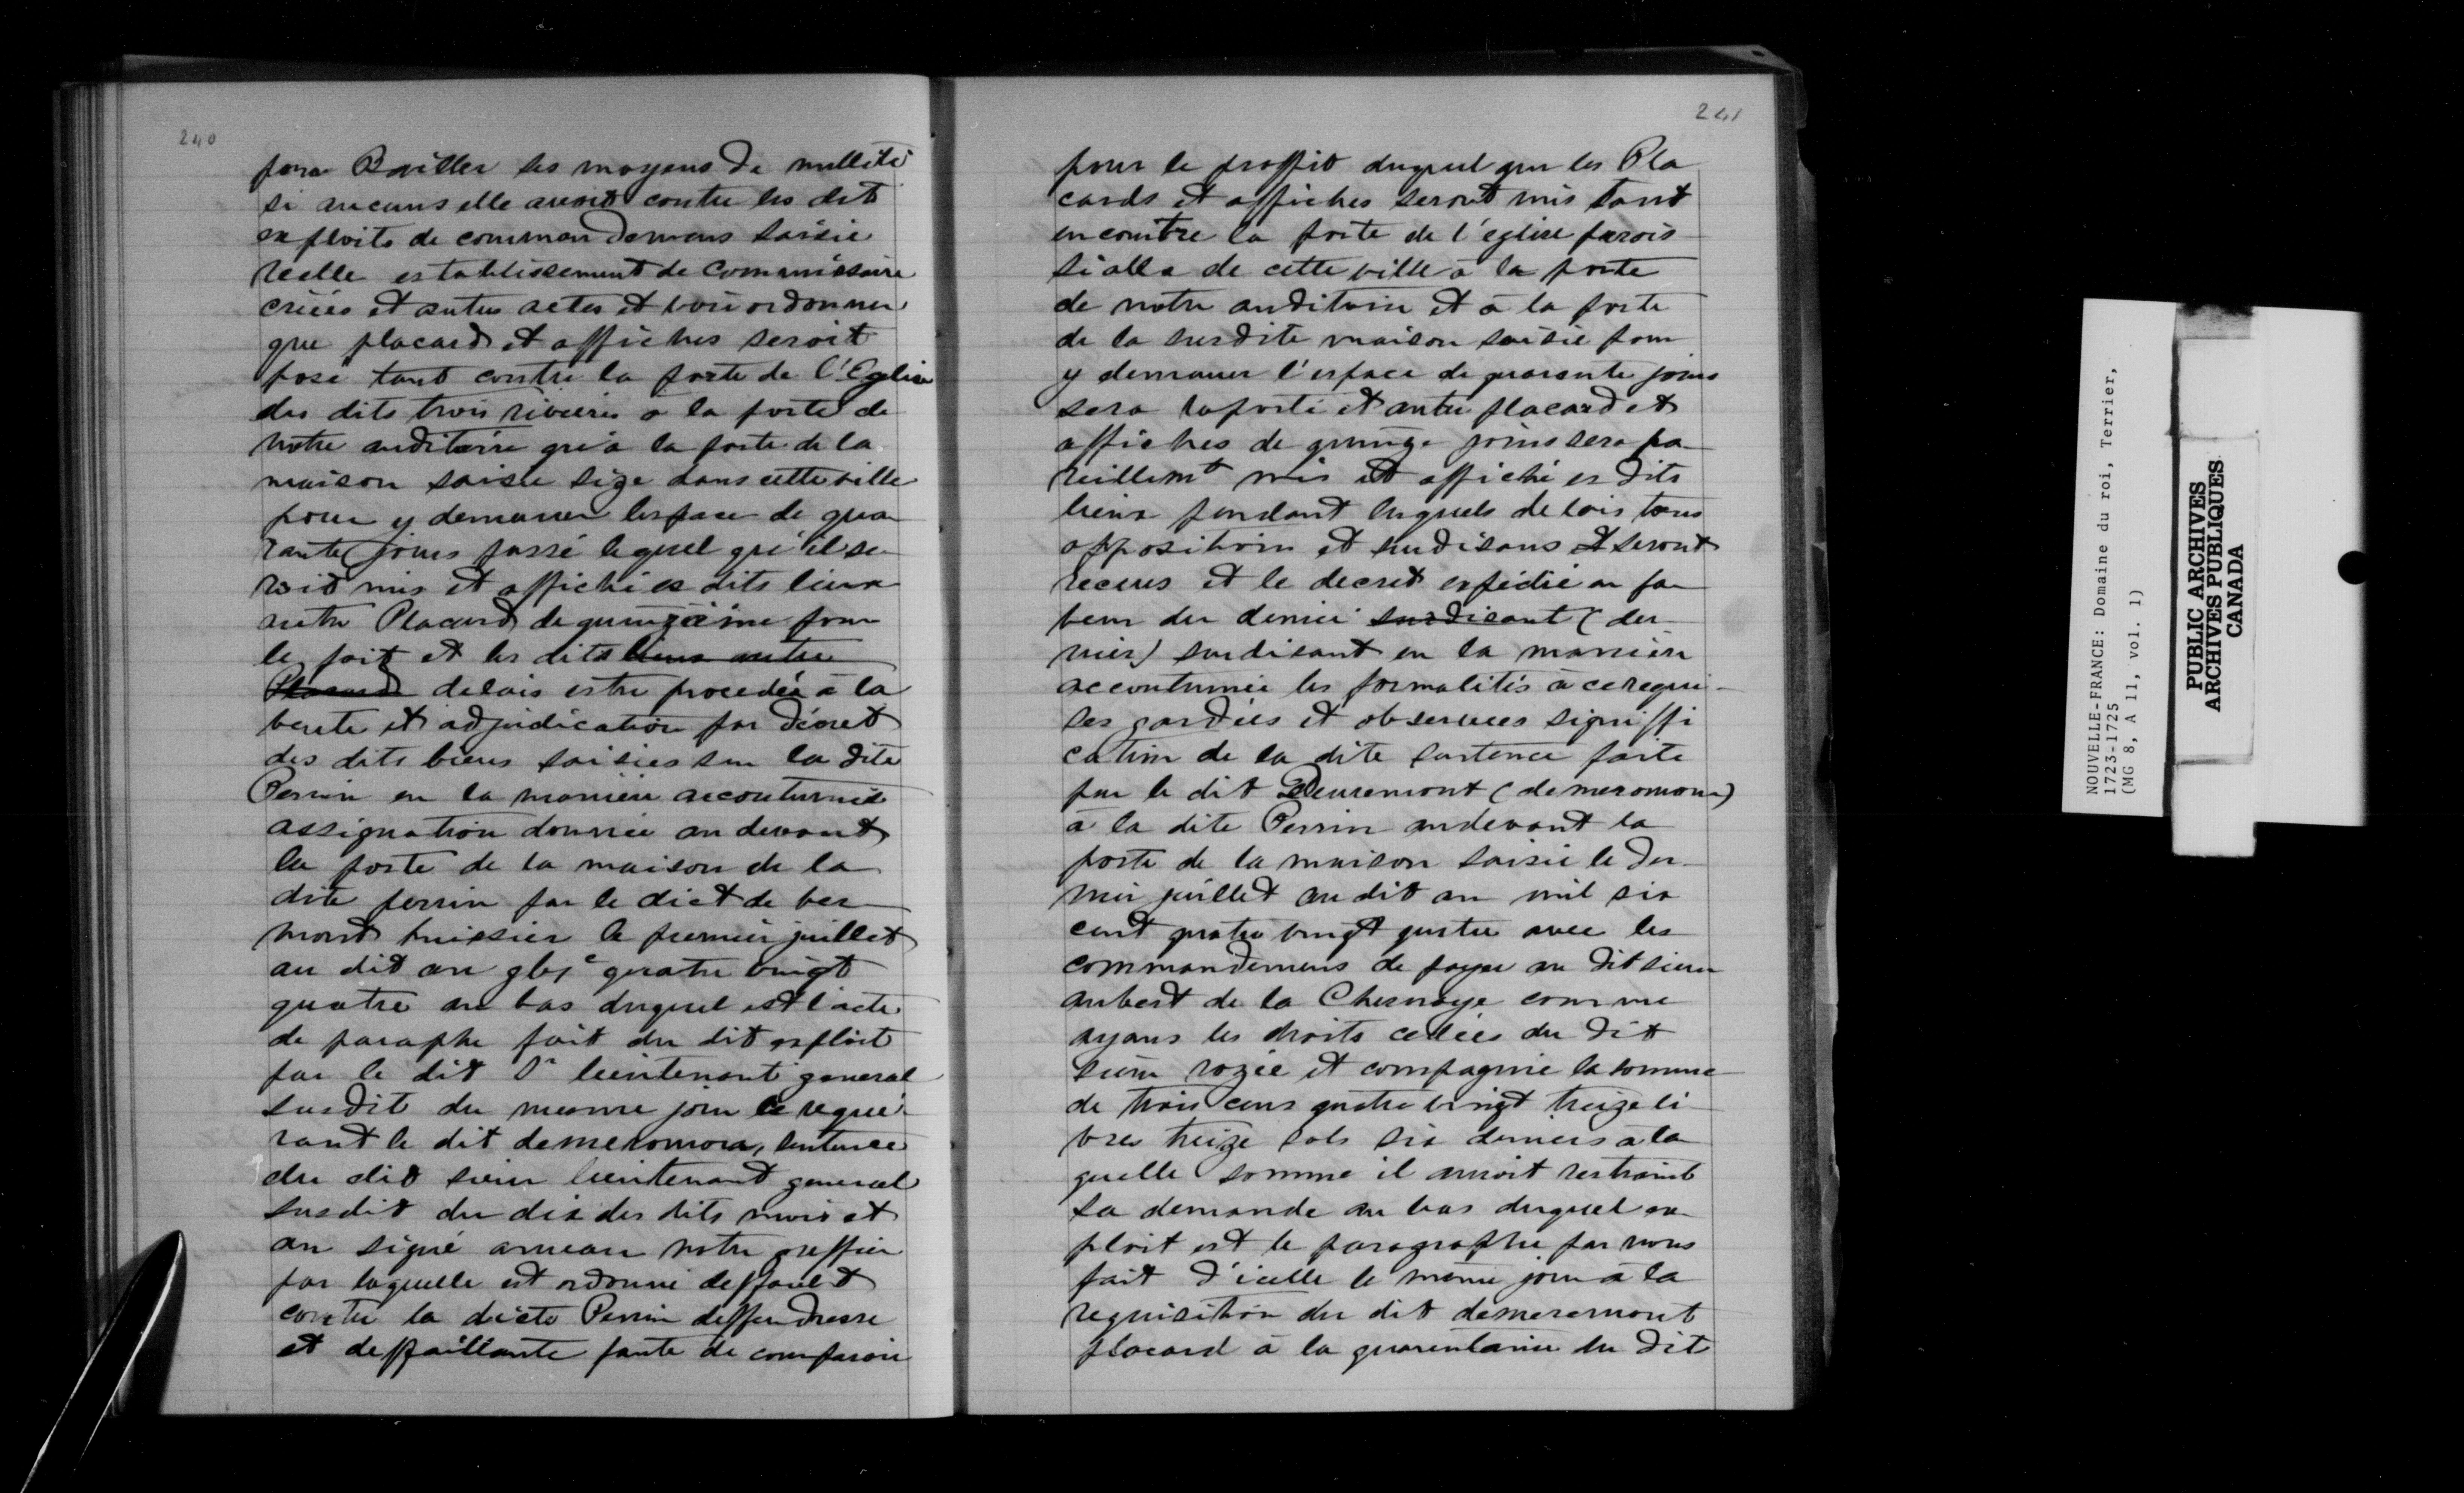 240
pour Bailler les moyens de nullité
si aucuns elle avoit contre les dit
exploits de commandemens saisie
reelle establissement de Commissaire
criées et autres actes et voir ordonner
que placard et affiches seroit
posé tant contre la porte de l'Eglise
des dits trois rivieres à la porte de
notre auditoire qu'à la porte de la
maison saisie size dans cette ville
pour y demeurer lespace de qua
rante jours passé lequel qu'il se
roit mis et affiché es dits lieux
autre Placard de quinzième pour
le fait et les dits lieux autre
Placard delais estre procedée à la
vente et adjudication par décret
des dits biens saisies sur la dite
Perrin en la manière accoutumée
assignation donnée au devant
la porte de la maison de la
dite perrin par le dict de ver
mont huissier le premier juillet
au dit an gbjc quatre vingt
quatre au bas duquel est l'acte
de paraphe fait du dit exploit
par le dit Sr lieutenant general
susdit du mesme jour ce reque
rant le dit demeromora, sentence
du dit sieur lieutenant general
susdit du dix des dits mois et
an signé ameau notre greffier
par laquelle est ordonné deffault
contre la dicte Perrin deffendresse
et deffaillante faute de comparoir
241
pour le proffit duquel que les Pla
cards et affiches seront mis tant
encontre la porte de l'eglise parois
sialle de cette ville à la porte
de notre auditoire et à la porte
de la susdite maison saisie pour
y demeurer l'espace de quarante jours
sera raporté et autre placard et
affiches de quinze jours sera pa
reillemt mis et affiché es dits
lieux pendant lesquels delois tous
opposition et surdisans et seront
receus et le decret expédié en fa
veur du dernier surdisant (der
nier) surdisant en la manière
accoutumée les formalités à ce requi-
ses gardées et observees signiffi
cation de la dite sentence faite
par le dit Demeremont (demeromon)
à la dite Perrin audevant la
porte de la maison saisie le der
nier juillet au dit an mil six
cent quatre vingt quatre avec les
commandemens de payer au dit sieur
aubert de la Chesnaye comme
ayans les droits cedées du dit
sieur rozée et compagnie la somme
de trois cens quatre vingt treize li
vres treize sols six deniers à la
quelle somme il auroit restraint
sa demande au bas duquel ex
ploit est le paragraphe par nous
fait d'icelle le même jour à la
requisition du dit demeremont
placard à la quarentaine du dit
NOUVELLE-FRANCE: Domaine du roi, Terrier,
1723-1725
(MG 8, A 11, vol. 1)
PUBLIC ARCHIVES
ARCHIVES PUBLIQUES
CANADA